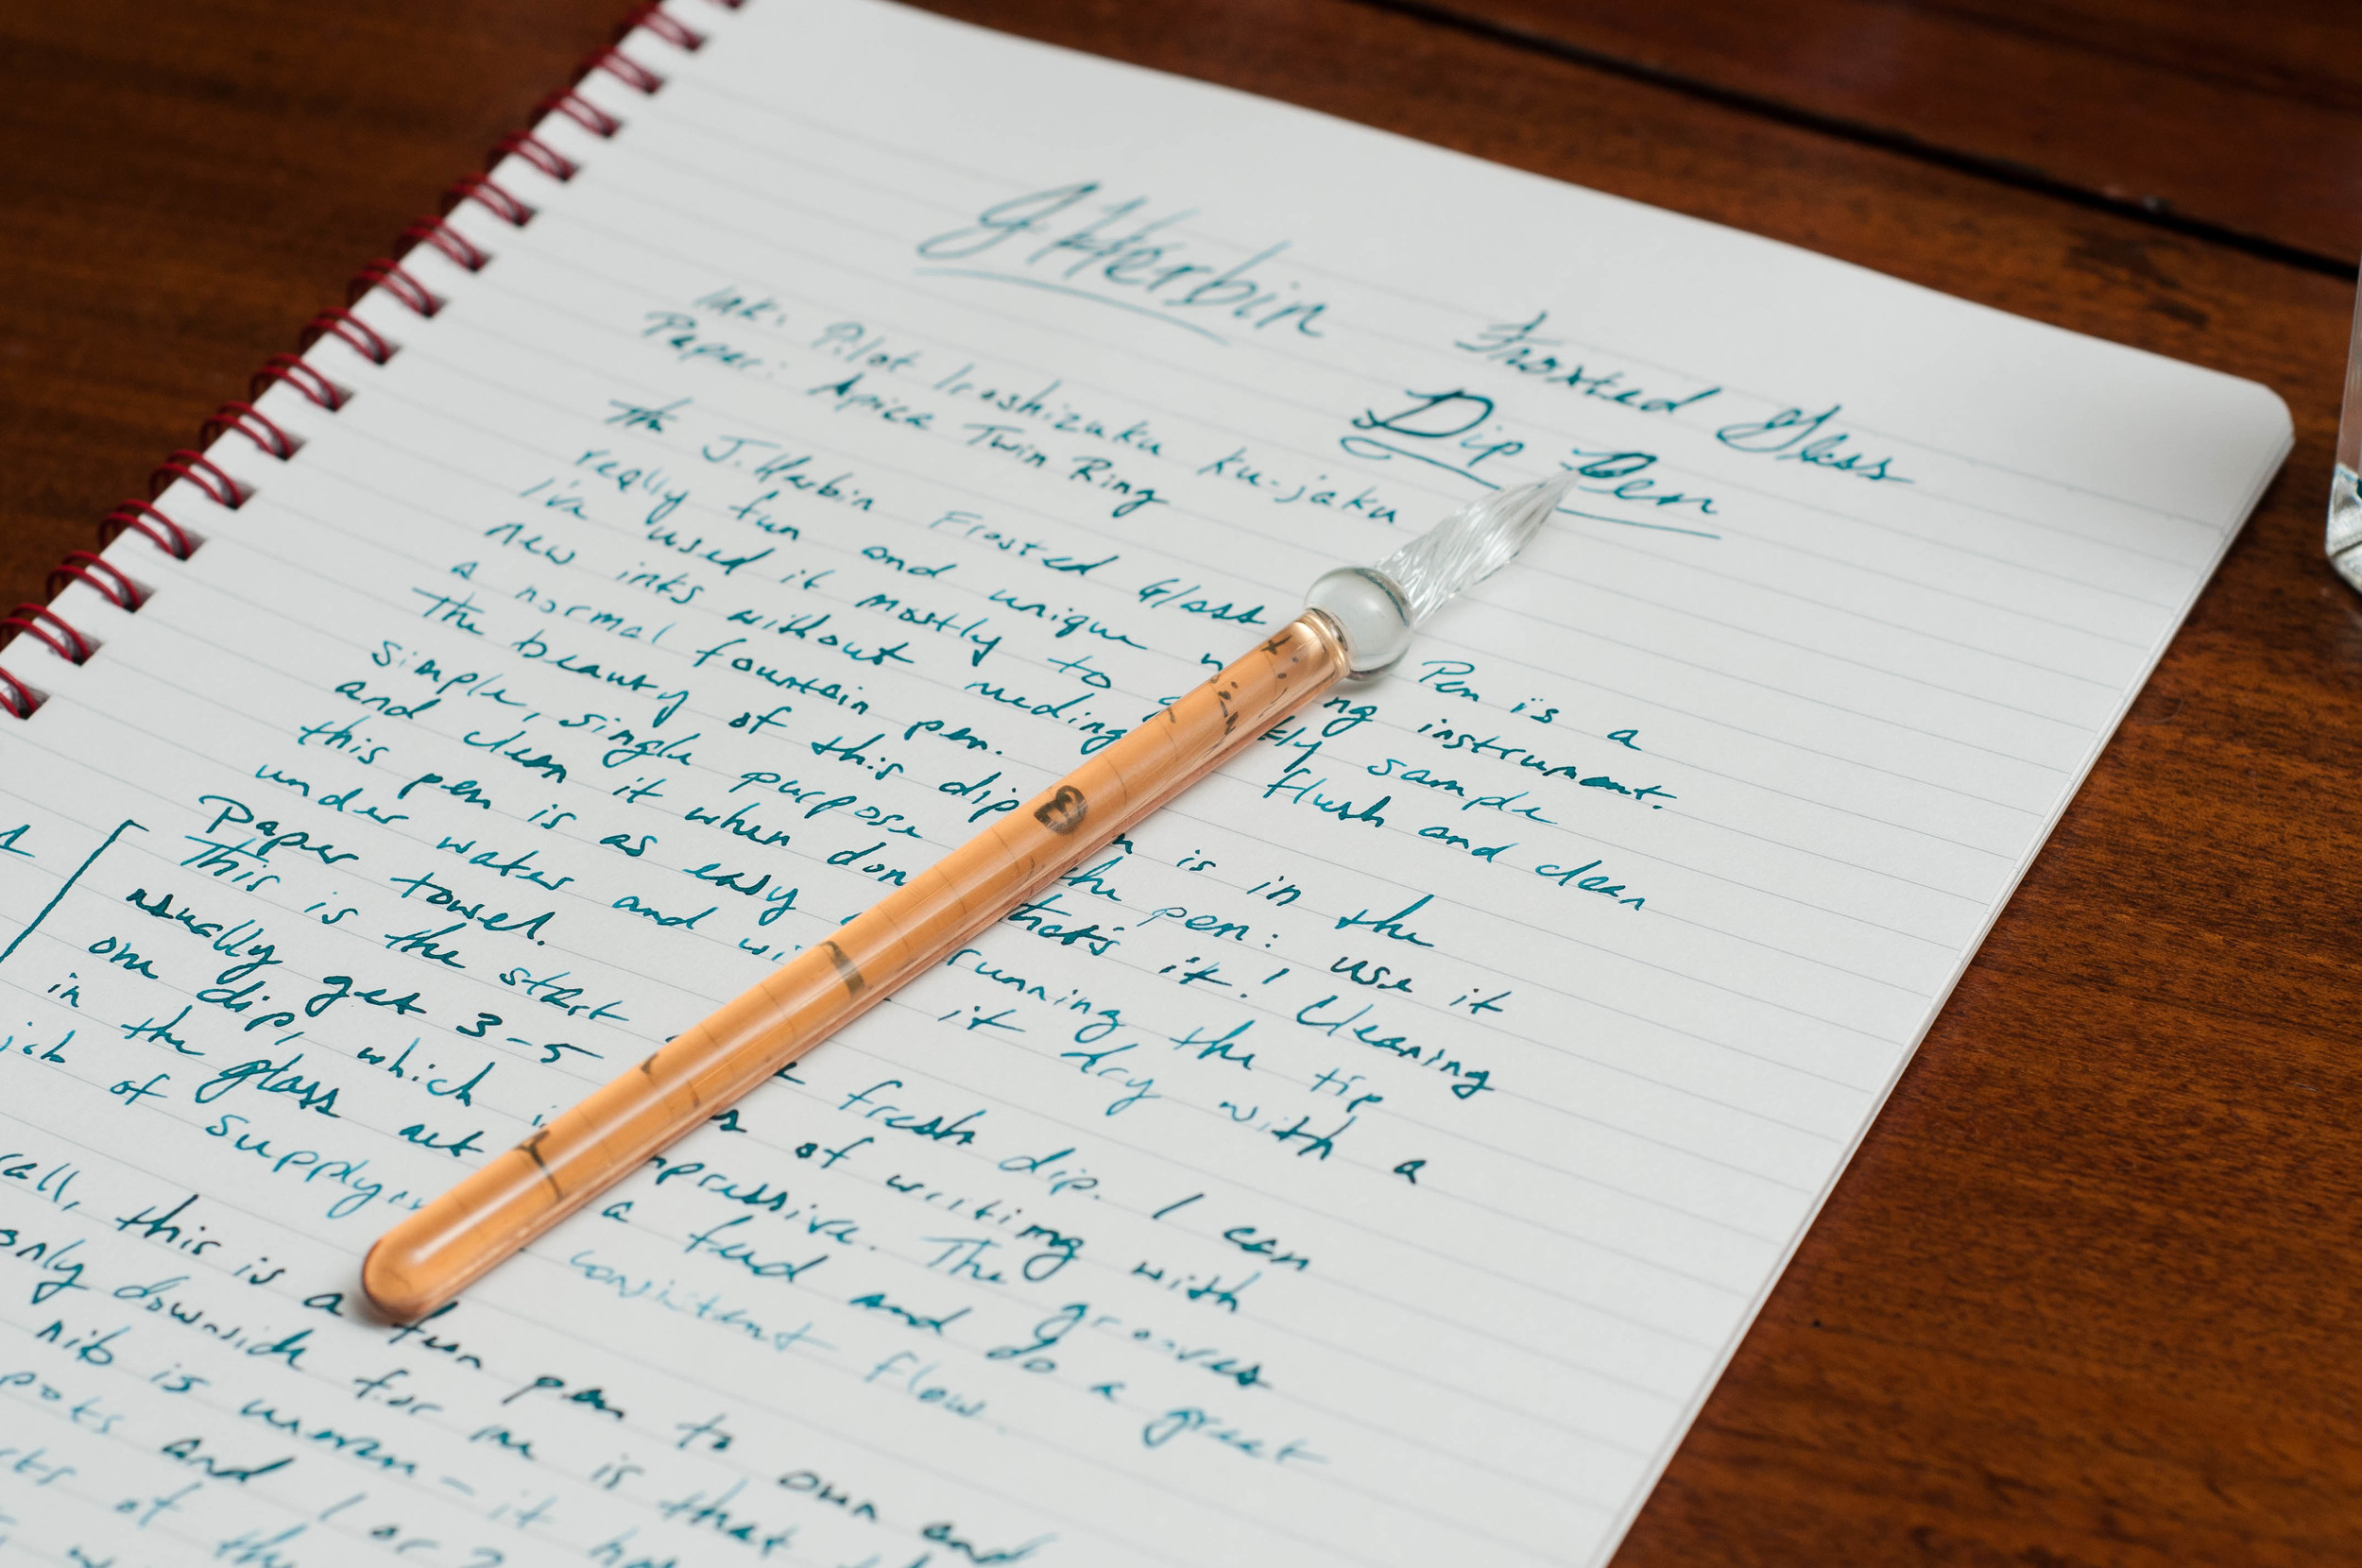 J Herbin Frosted Glass
Dip Pen
Ink: Pilot Iroshizuku Ku-jaku
Paper: Apica Twin Ring
The J. Herbin Frosted Glass Pen is a
really fun and unique instrument.
I've used it mostly to sample
new inks without needing flush and clean
a normal fountain pen.
The beauty of this dip is in the
simple, single purpose the pen: use it
and clean it when don that's it! Cleaning
this pen is as easy running the tip
under water and it dry with a
Paper towel.
This is the start fresh dip. I can
usually get 3-5 of writing with
one dip, which impressive. The grooves
in the glass act a feed and do a great
job of supplying consistent flow.
this is a fun pen to own and
only downside for me is that
nib is uneven - it
and 1 or 2
of the